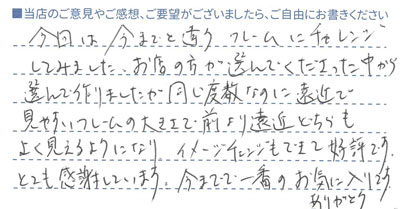 ■当店のご意見やご感想、ご要望がございましたら、ご自由にお書きください
今回は今までと違うフレームにチャレンジ
してみました、お店の方が選んでくださった中から
選んで作りましたが同じ度数なのに遠近で
見やすいフレームの大きさで前より遠近どちらも
よく見えるようになり イメージチェンジもできて好評です。
とても感謝しています。今までで一番のお気に入りです。
ありがとう